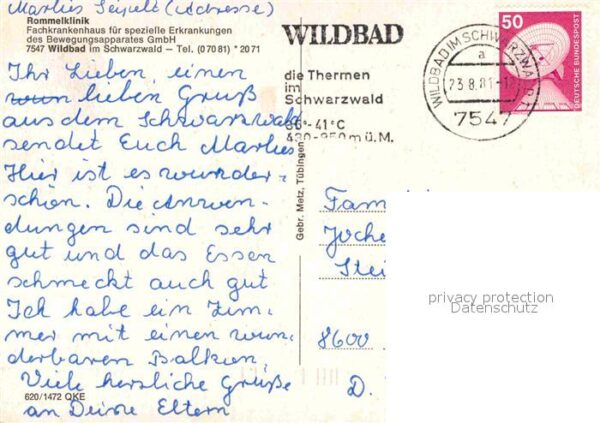 Marlies Seipelt (Adresse)
Rommelklinik
Fachkrankenhaus für spezielle Erkrankungen
des Bewegungsapparates GmbH
7547 Wildbad im Schwarzwald – Tel. (07081) * 2071
Ihr Lieben, einen
lieben Gruß
aus dem Schwarzwald
sendet Euch Marlies
Hier ist es wunder-
schön. Die Anwen-
dungen sind sehr
gut und das Essen
schmeckt auch gut
Ich habe ein Zim-
mer mit einen wun-
derbaren Balkon.
Viele herzliche Grüße
an Deine Eltern
620/1472 QKE
Gebr. Metz, Tübingen
WILDBAD
die Thermen
im
Schwarzwald
-41°C
m ü. M.
WILDBAD IM SCHWARZWALD 1
a
23.8.81
7547
50
DEUTSCHE BUNDESPOST
Fam
Joche
Stei
8600
D.
privacy protection
Datenschutz